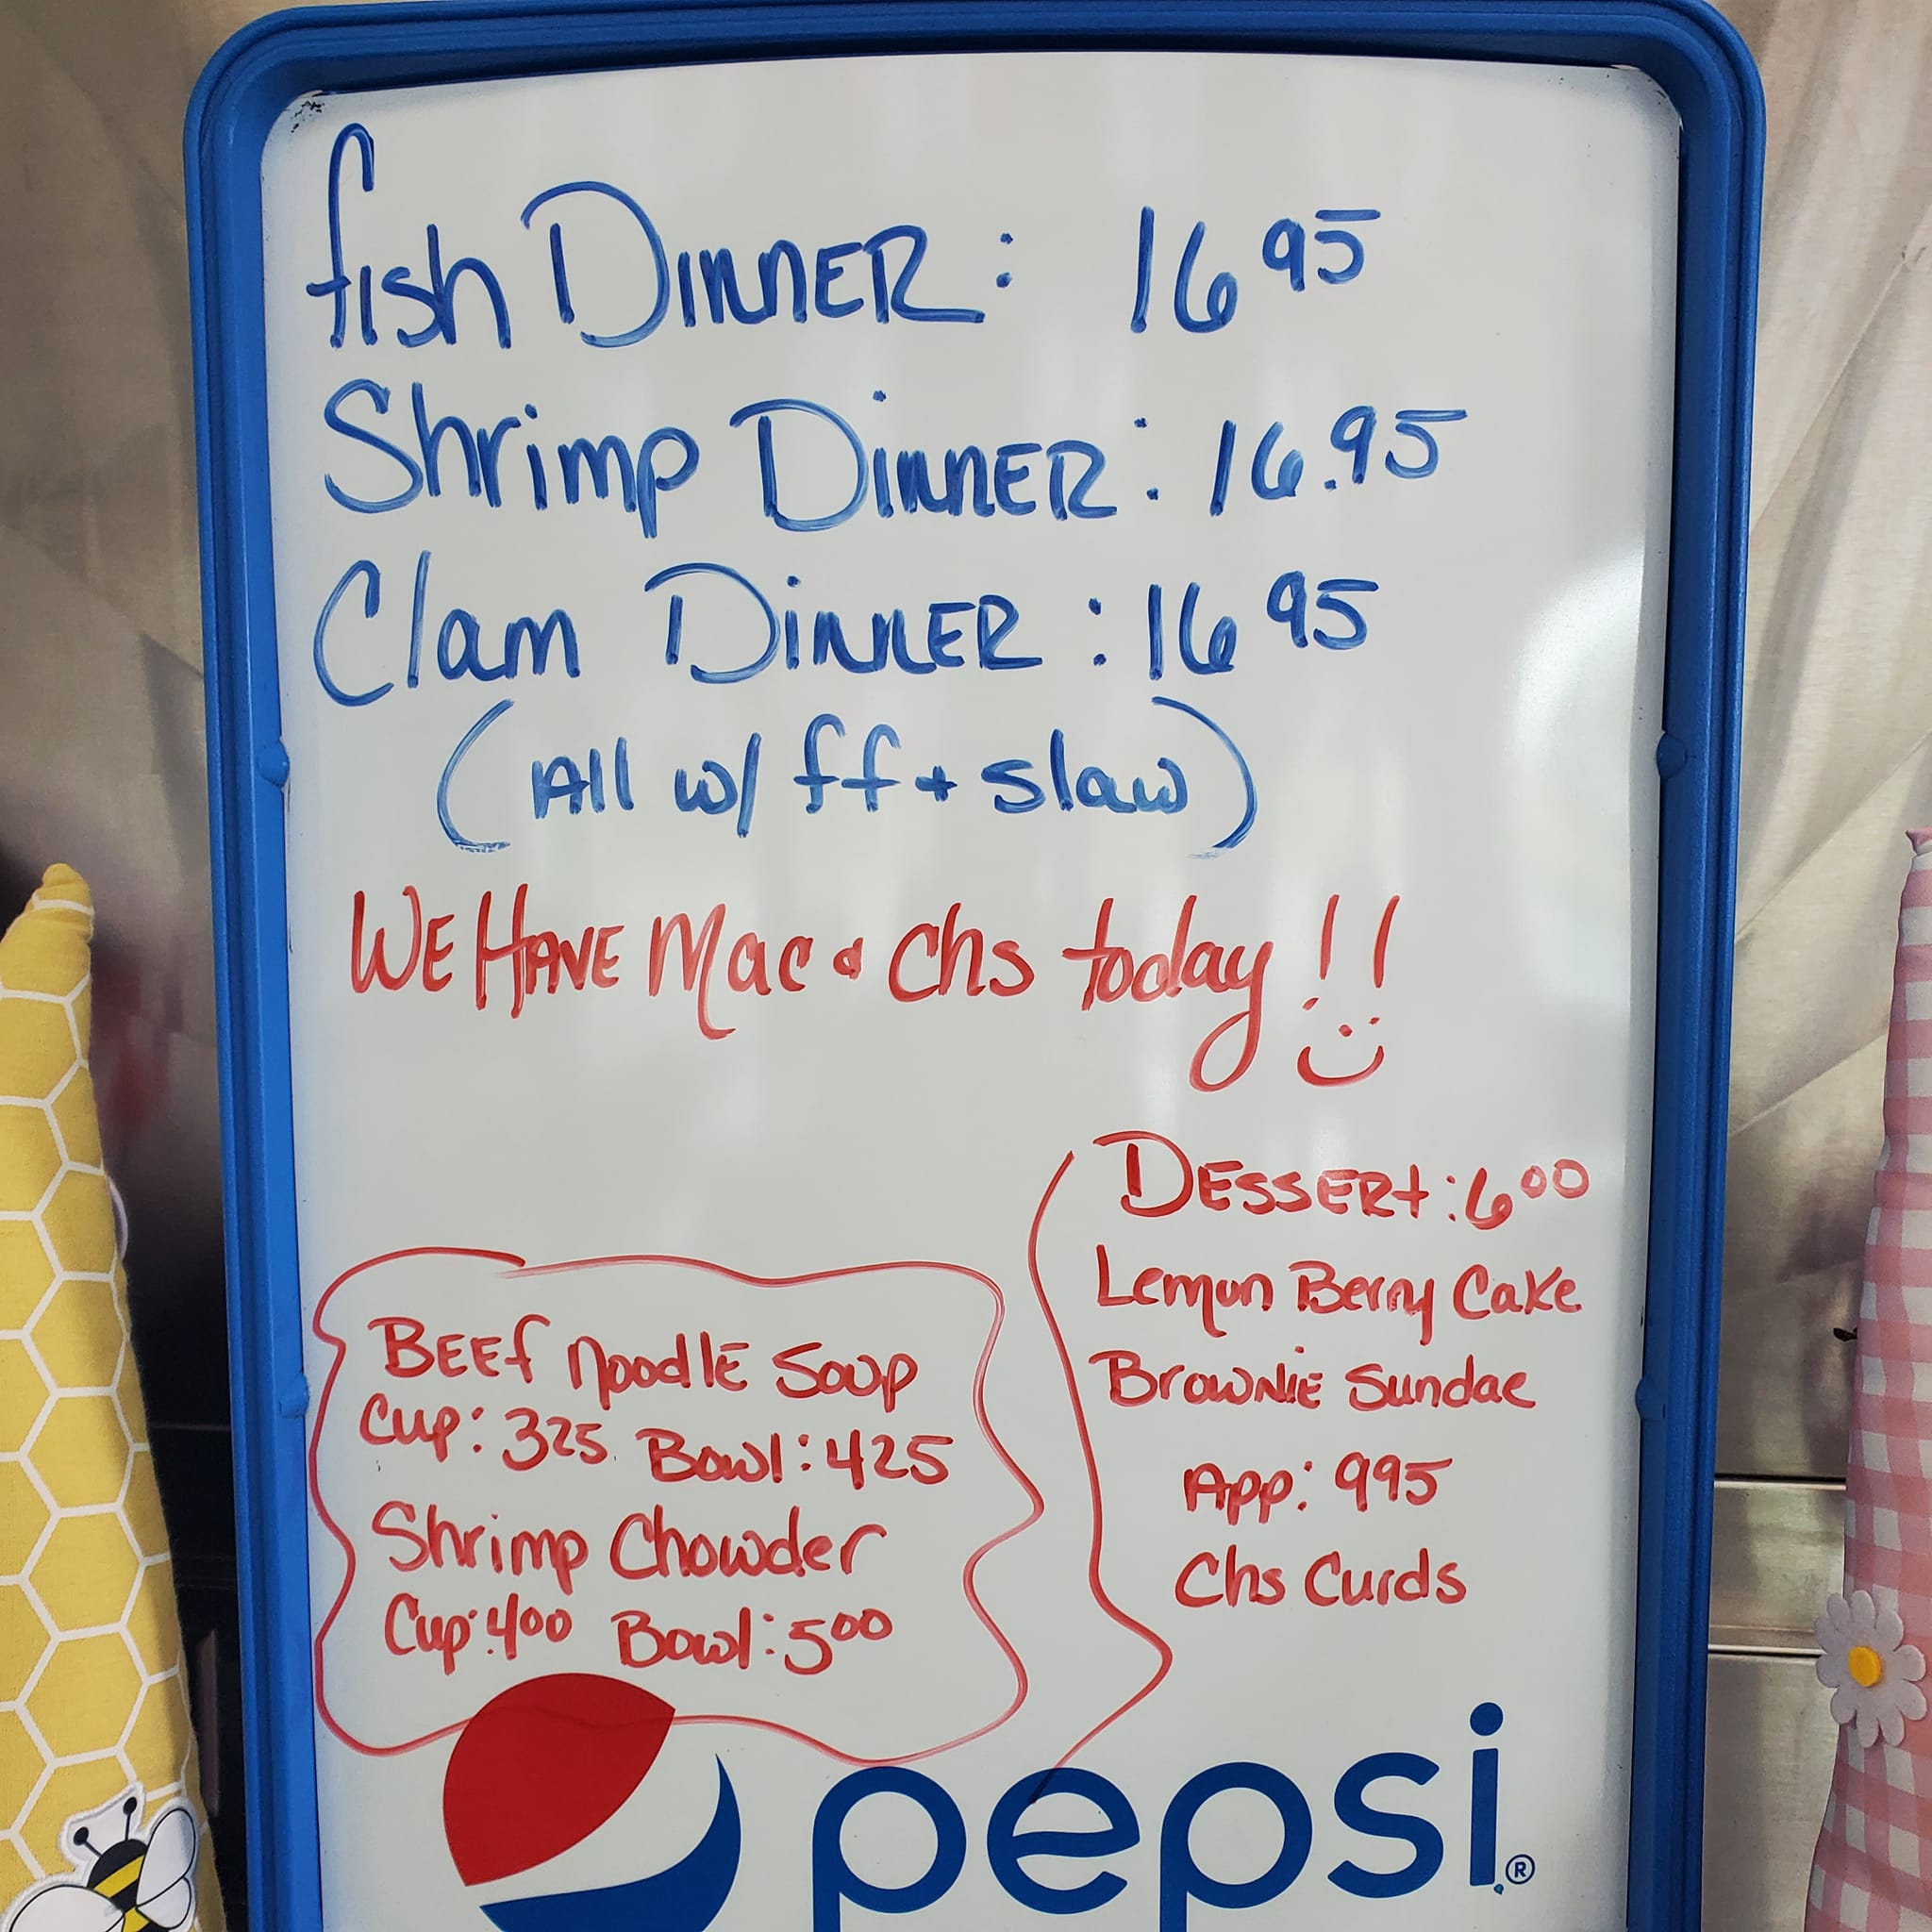 fish DINNER: 16 95
Shrimp DINNER: 16.95
Clam DINNER: 16 95
(All w/ ff + slaw)
WE HAVE Mac & Chs today!!
BEEf NoodlE Soup
Cup: 325 Bowl: 425
Shrimp Chowder
Cup: 400 Bowl: 500
DESSERt: 600
Lemon Berry Cake
BrowNiE Sundae
App: 995
Chs Curds
pepsi®